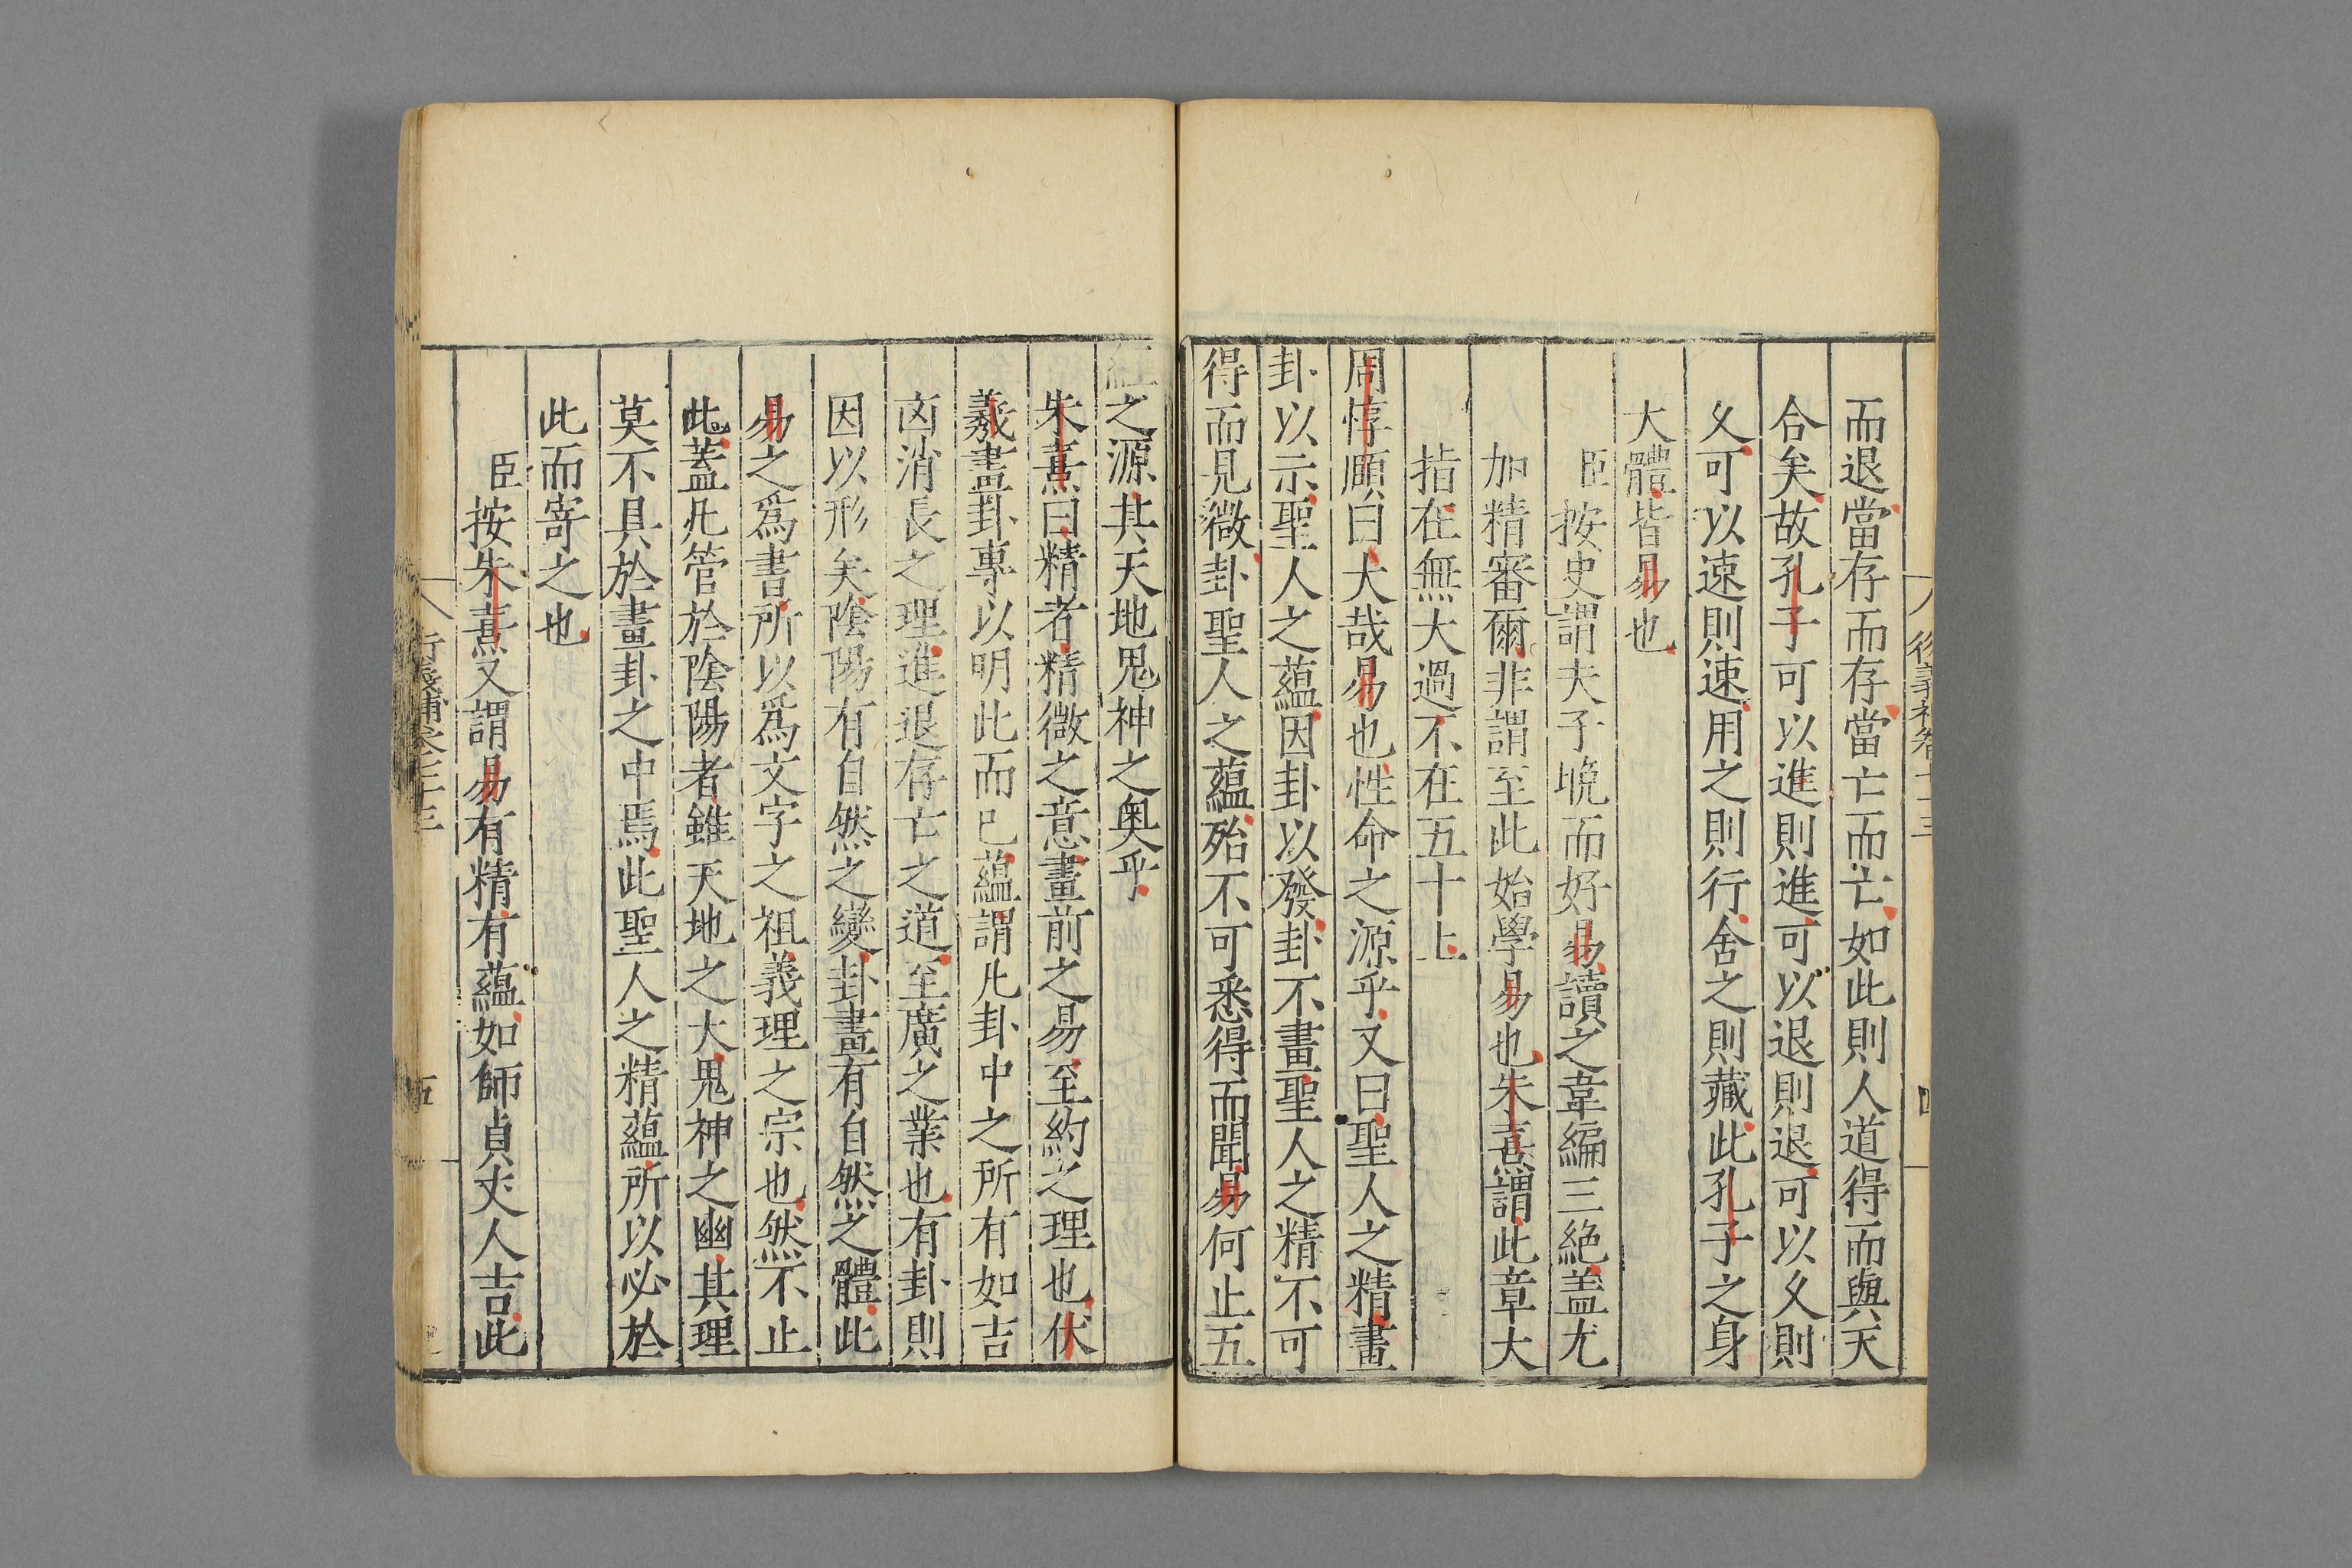 而退當存而存當亡而亡如此則人道得而與天
合矣故孔子可以進則進可以退則退可以久則
久可以速則速用之則行舍之則藏此孔子之身
大體皆易也
臣按史謂夫子晚而好易讀之韋編三絕盖尤
加精審爾非謂至此始學易也朱熹謂此章大
指在無大過不在五十上
周惇頤曰大哉易也性命之源乎又曰聖人之精畫
卦以示聖人之蘊因卦以發卦不畫聖人之精不可
得而見微卦聖人之蘊殆不可悉得而聞易何止五
經之源其天地鬼神之奧乎
朱熹曰精者精微之意畫前之易至約之理也伏
羲畫卦專以明此而已蘊謂凡卦中之所有如吉
凶消長之理進退存亡之道至廣之業也有卦則
因以形矣陰陽有自然之變卦畫有自然之體此
易之爲書所以爲文字之祖義理之宗也然不止
此蓋凡管於陰陽者雖天地之大鬼神之幽其理
莫不具於畫卦之中焉此聖人之精蘊所以必於
此而寄之也
臣按朱熹又謂易有精有蘊如師貞丈人吉此